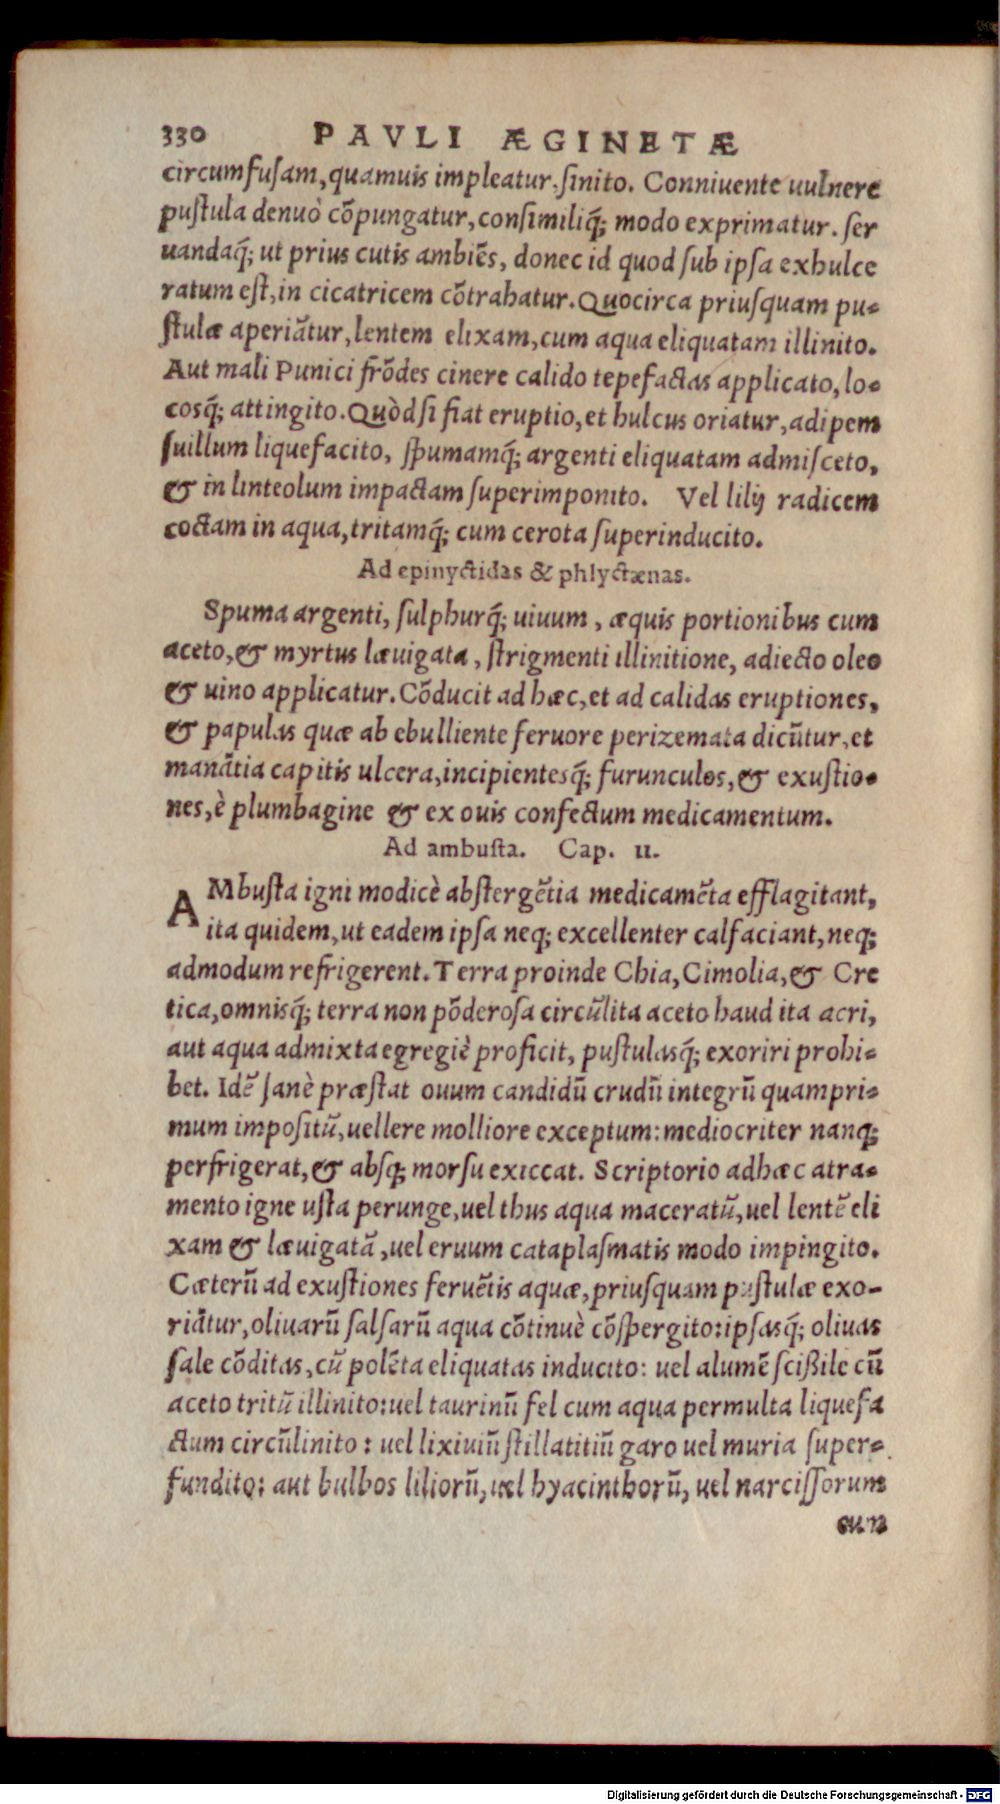 330 PAVLI ÆGINETÆ
circumfuſam, quamuis impleatur, ſinito. Conniuente uulnere
puſtula denuò cõpungatur, conſimiliq́; modo exprimatur. ſer
uandaq́; ut prius cutis ambiẽs, donec id quod ſub ipſa exhulce
ratum eſt, in cicatricem cõtrahatur. Quocirca priuſquam pu-
ſtulæ aperiãtur, lentem elixam, cum aqua eliquatam illinito.
Aut mali Punici frõdes cinere calido tepefactas applicato, lo-
cosq́; attingito. Quòd ſi fiat eruptio, et hulcus oriatur, adipem
ſuillum liquefacito, ſpumamq́; argenti eliquatam admiſceto,
& in linteolum impactam ſuperimponito. Vel lilij radicem
coctam in aqua, tritamq́; cum cerota ſuperinducito.
Ad epinyctidas & phlyctænas.
Spuma argenti, ſulphurq́; uiuum, æquis portionibus cum
aceto, & myrtus læuigata, ſtrigmenti illinitione, adiecto oleo
& uino applicatur. Cõducit ad hæc, et ad calidas eruptiones,
& papulas quæ ab ebulliente feruore perizemata dicũtur, et
manãtia capitis ulcera, incipientesq́; furunculos, & exuſtio-
nes, è plumbagine & ex ouis confectum medicamentum.
Ad ambuſta. Cap. 11.
AMbuſta igni modicè abſtergẽtia medicamẽta efflagitant,
ita quidem, ut eadem ipſa neq; excellenter calfaciant, neq;
admodum refrigerent. Terra proinde Chia, Cimolia, & Cre
tica, omnisq́; terra non põderoſa circũlita aceto haud ita acri,
aut aqua admixta egregiè proficit, puſtulasq́; exoriri prohi-
bet. Idẽ ſanè præſtat ouum candidũ crudũ integrũ quampri-
mum impoſitũ, uellere molliore exceptum: mediocriter nanq;
perfrigerat, & abſq; morſu exiccat. Scriptorio adhæc atra-
mento igne uſta perunge, uel thus aqua maceratũ, uel lentẽ eli
xam & læuigatã, uel eruum cataplaſmatis modo impingito.
Cæterũ ad exuſtiones feruẽtis aquæ, priuſquam puſtulæ exo-
riãtur, oliuarũ ſalſarũ aqua cõtinuè cõſpergito: ipſasq́; oliuas
ſale cõditas, cũ polẽta eliquatas inducito: uel alumẽ ſciſsile cũ
aceto tritũ illinito: uel taurinũ fel cum aqua permulta liquefa
ctum circũlinito: uel lixiuiũ ſtillatitiũ garo uel muria ſuper-
fundito: aut bulbos liliorũ, uel hyacinthorũ, uel narciſſorum
cum
Digitalisierung gefördert durch die Deutsche Forschungsgemeinschaft - DFG